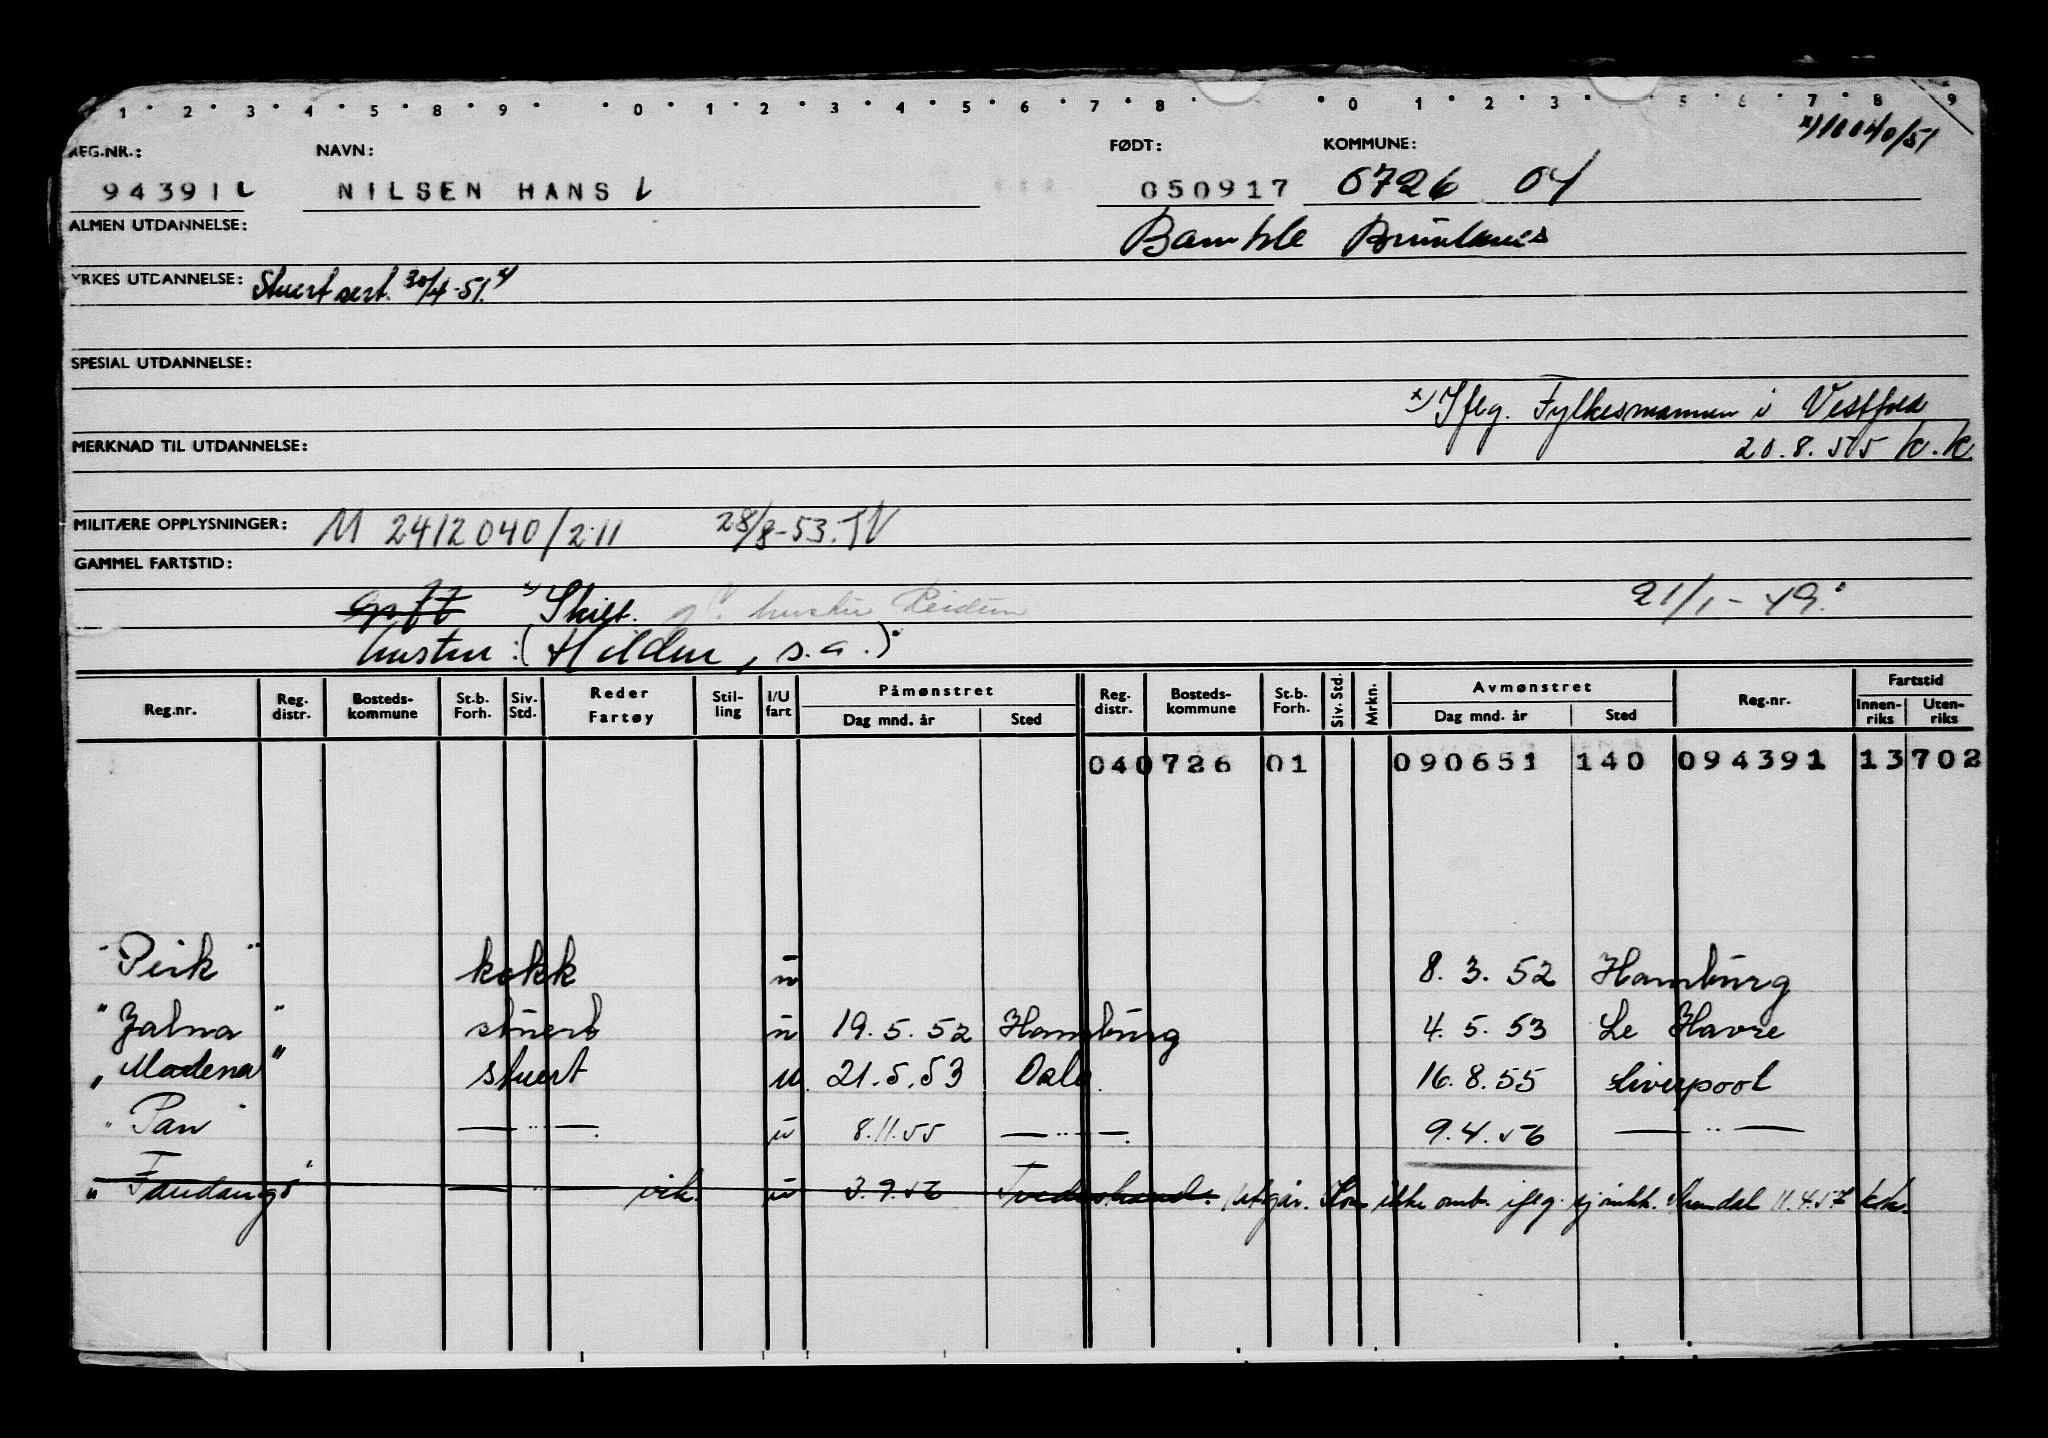 1 2 3 4 5 8 9 0 1 2 3 4 5 6 7 8 0 1 2 3 5 6 7 8 9
x) 10040/51
REG.NR.: NAVN: FØDT: KOMMUNE:
94391 NILSEN HANS 050917 0726 04
ALMEN UTDANNELSE: Bamble Brunlanes
YRKES UTDANNELSE: Stuert sert. 30/4-51. x)
SPESIAL UTDANNELSE:
x) Iflg. Fylkesmannen i Vestfold
MERKNAD TIL UTDANNELSE: 20.8.55 K.K.
MILITÆRE OPPLYSNINGER: M 2412040/211 28/8-53. TV
GAMMEL FARTSTID:
gift x) Skilt. hustru Reidun 21/1-49.
hustru: (Hildur, s.a.)
Reg.nr. Reg. distr. Bosteds-kommune St.b. Forh. Siv. Std. Reder Fartøy Stil-ling I/U fart Påmønstret Dag mnd. år Sted Reg. distr. Bosteds-kommune St.b. Forh. Siv. Std. Mrkn. Avmønstret Dag mnd. år Sted Reg.nr. Fartstid Innen-riks Uten-riks
040726 01 090651 140 094391 13702
"Peik" kokk u 8.3.52 Hamburg
"Jalna" stuert u 19.5.52 Hamburg 4.5.53 Le Havre
"Modena" stuert u. 21.5.53 Oslo. 16.8.55 Liverpool
"Pan" — " —. u 8.11.55 — " —. 9.4.56 — " —
"Fandango" — " — vik. u 3.9.56 Tvedestrand. Utgår. Kom ikke omb. iflg. Arendal 11.4.57 kk.